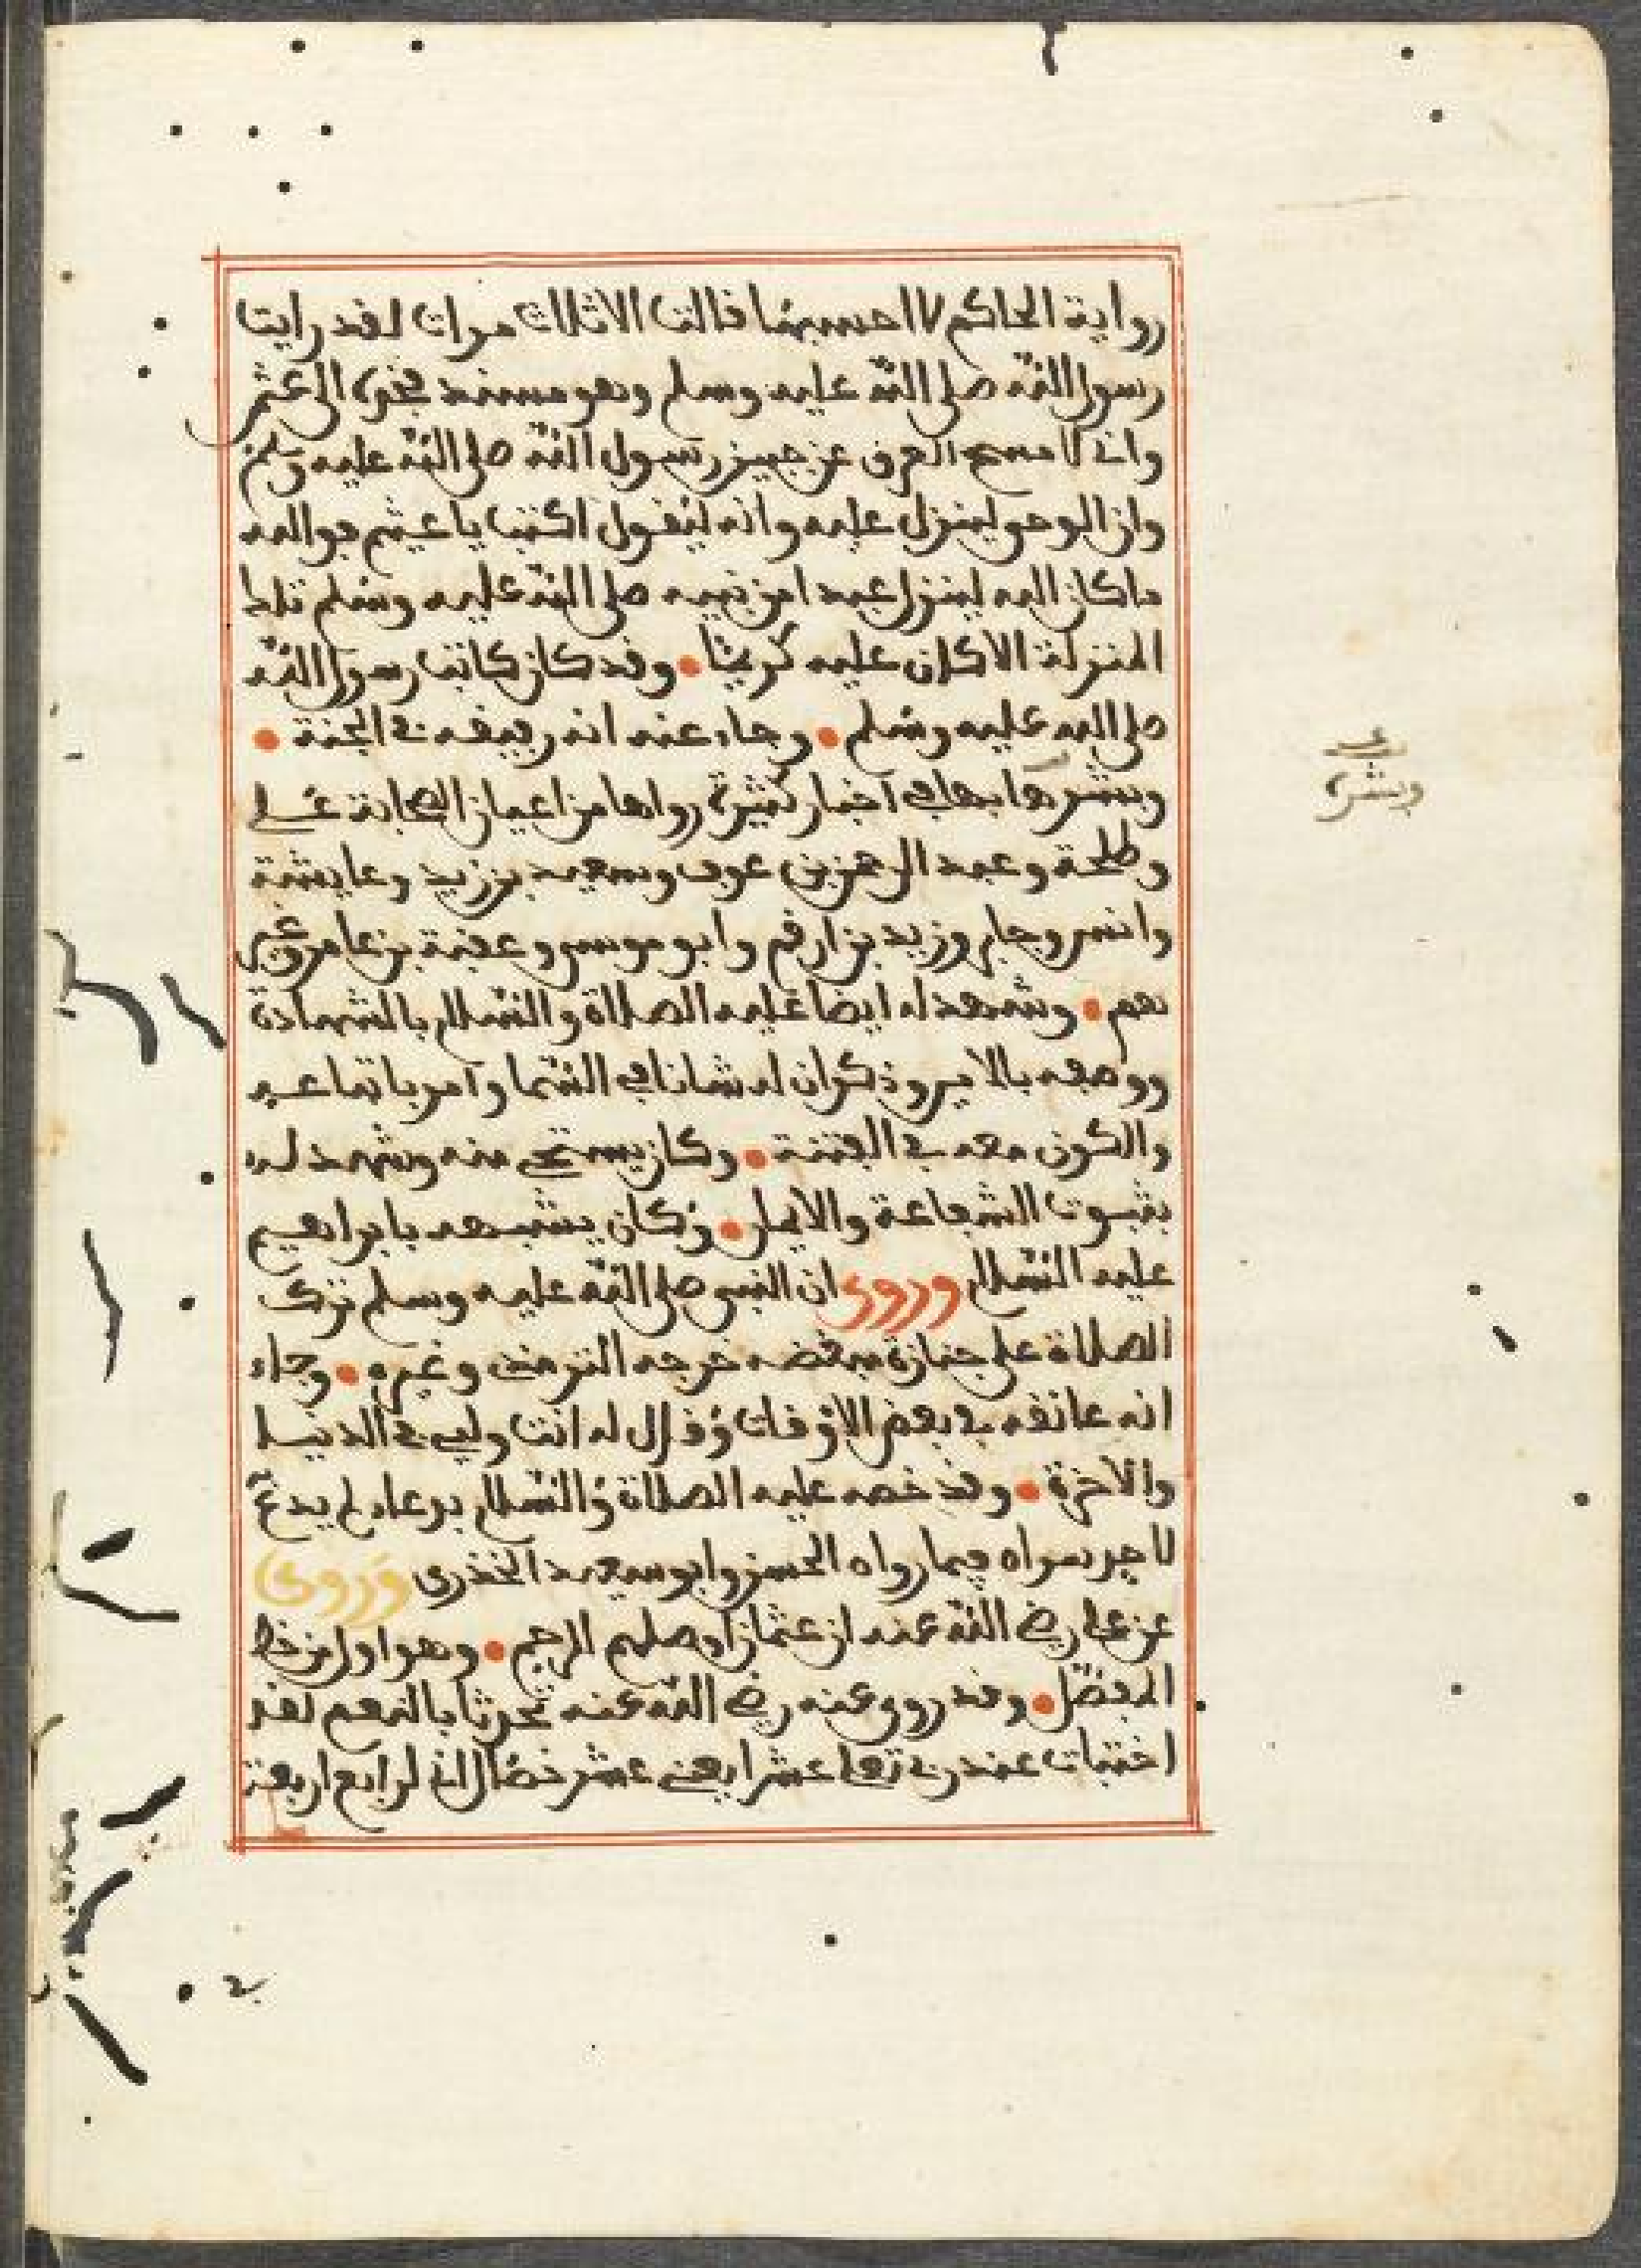 رواية الحاكم لا احسبها قالت الا ثلاث مرات لقد رايت
رسول الله صلى الله عليه وسلم وهو مسند فخذه الى عثمن
واني لامسح العرق عن جبين رسول الله صلى الله عليه وسلم
وان الوحي لينزل عليه وانه ليقول اكتب يا عثيم فوالله
ماكان الله لينزل عبدا من نبيه صلى الله عليه وسلم تلك
المنزلة الا كان عليه كريما وقد كان كاتب رسول الله
صلى الله عليه وسلم وجاء عنه انه رفيقه في الجنة
وبشره بها في اخبار كثيرة رواها من اعيان الصحابة علي
وطلحة وعبد الرحمن بن عوف وسعيد بن زيد وعايشة
وانس وجابر وزيد بن ارقم وابو موسى وعقبة بن عامر وغير
هم وشهد له ايضا عليه الصلاة والسلام بالشهادة
ووصفه بالامين وذكر ان له شانا في السما وامر باتباعه
والكون معه في الفتنة وكان يستحي منه وشهد له
بثبوت الشفاعة والايمان وكان يشبهه بابراهيم
عليه السلام وروي ان النبي صلى الله عليه وسلم ترك
الصلاة على جنازة مبغضه خرجه الترمذي وغيره وجاء
انه عانقه في بعض الاوقات وقال له انت وليي في الدنيا
والاخرة وقد خصه عليه الصلاة والسلام بدعاء لم يدع
لاحد سواه فيما رواه الحسن وابو سعيد الخدري وروي
عن علي رضي الله عنه ان عثمان اوصلهم للرحم وهو اول من خط
المفصل وقد روي عنه رضي الله عنه تحدثا بالنعم لقد
اختبات عند ربي تعلى عشرا يعني عشر خصال اني لرابع اربعة
وبشره